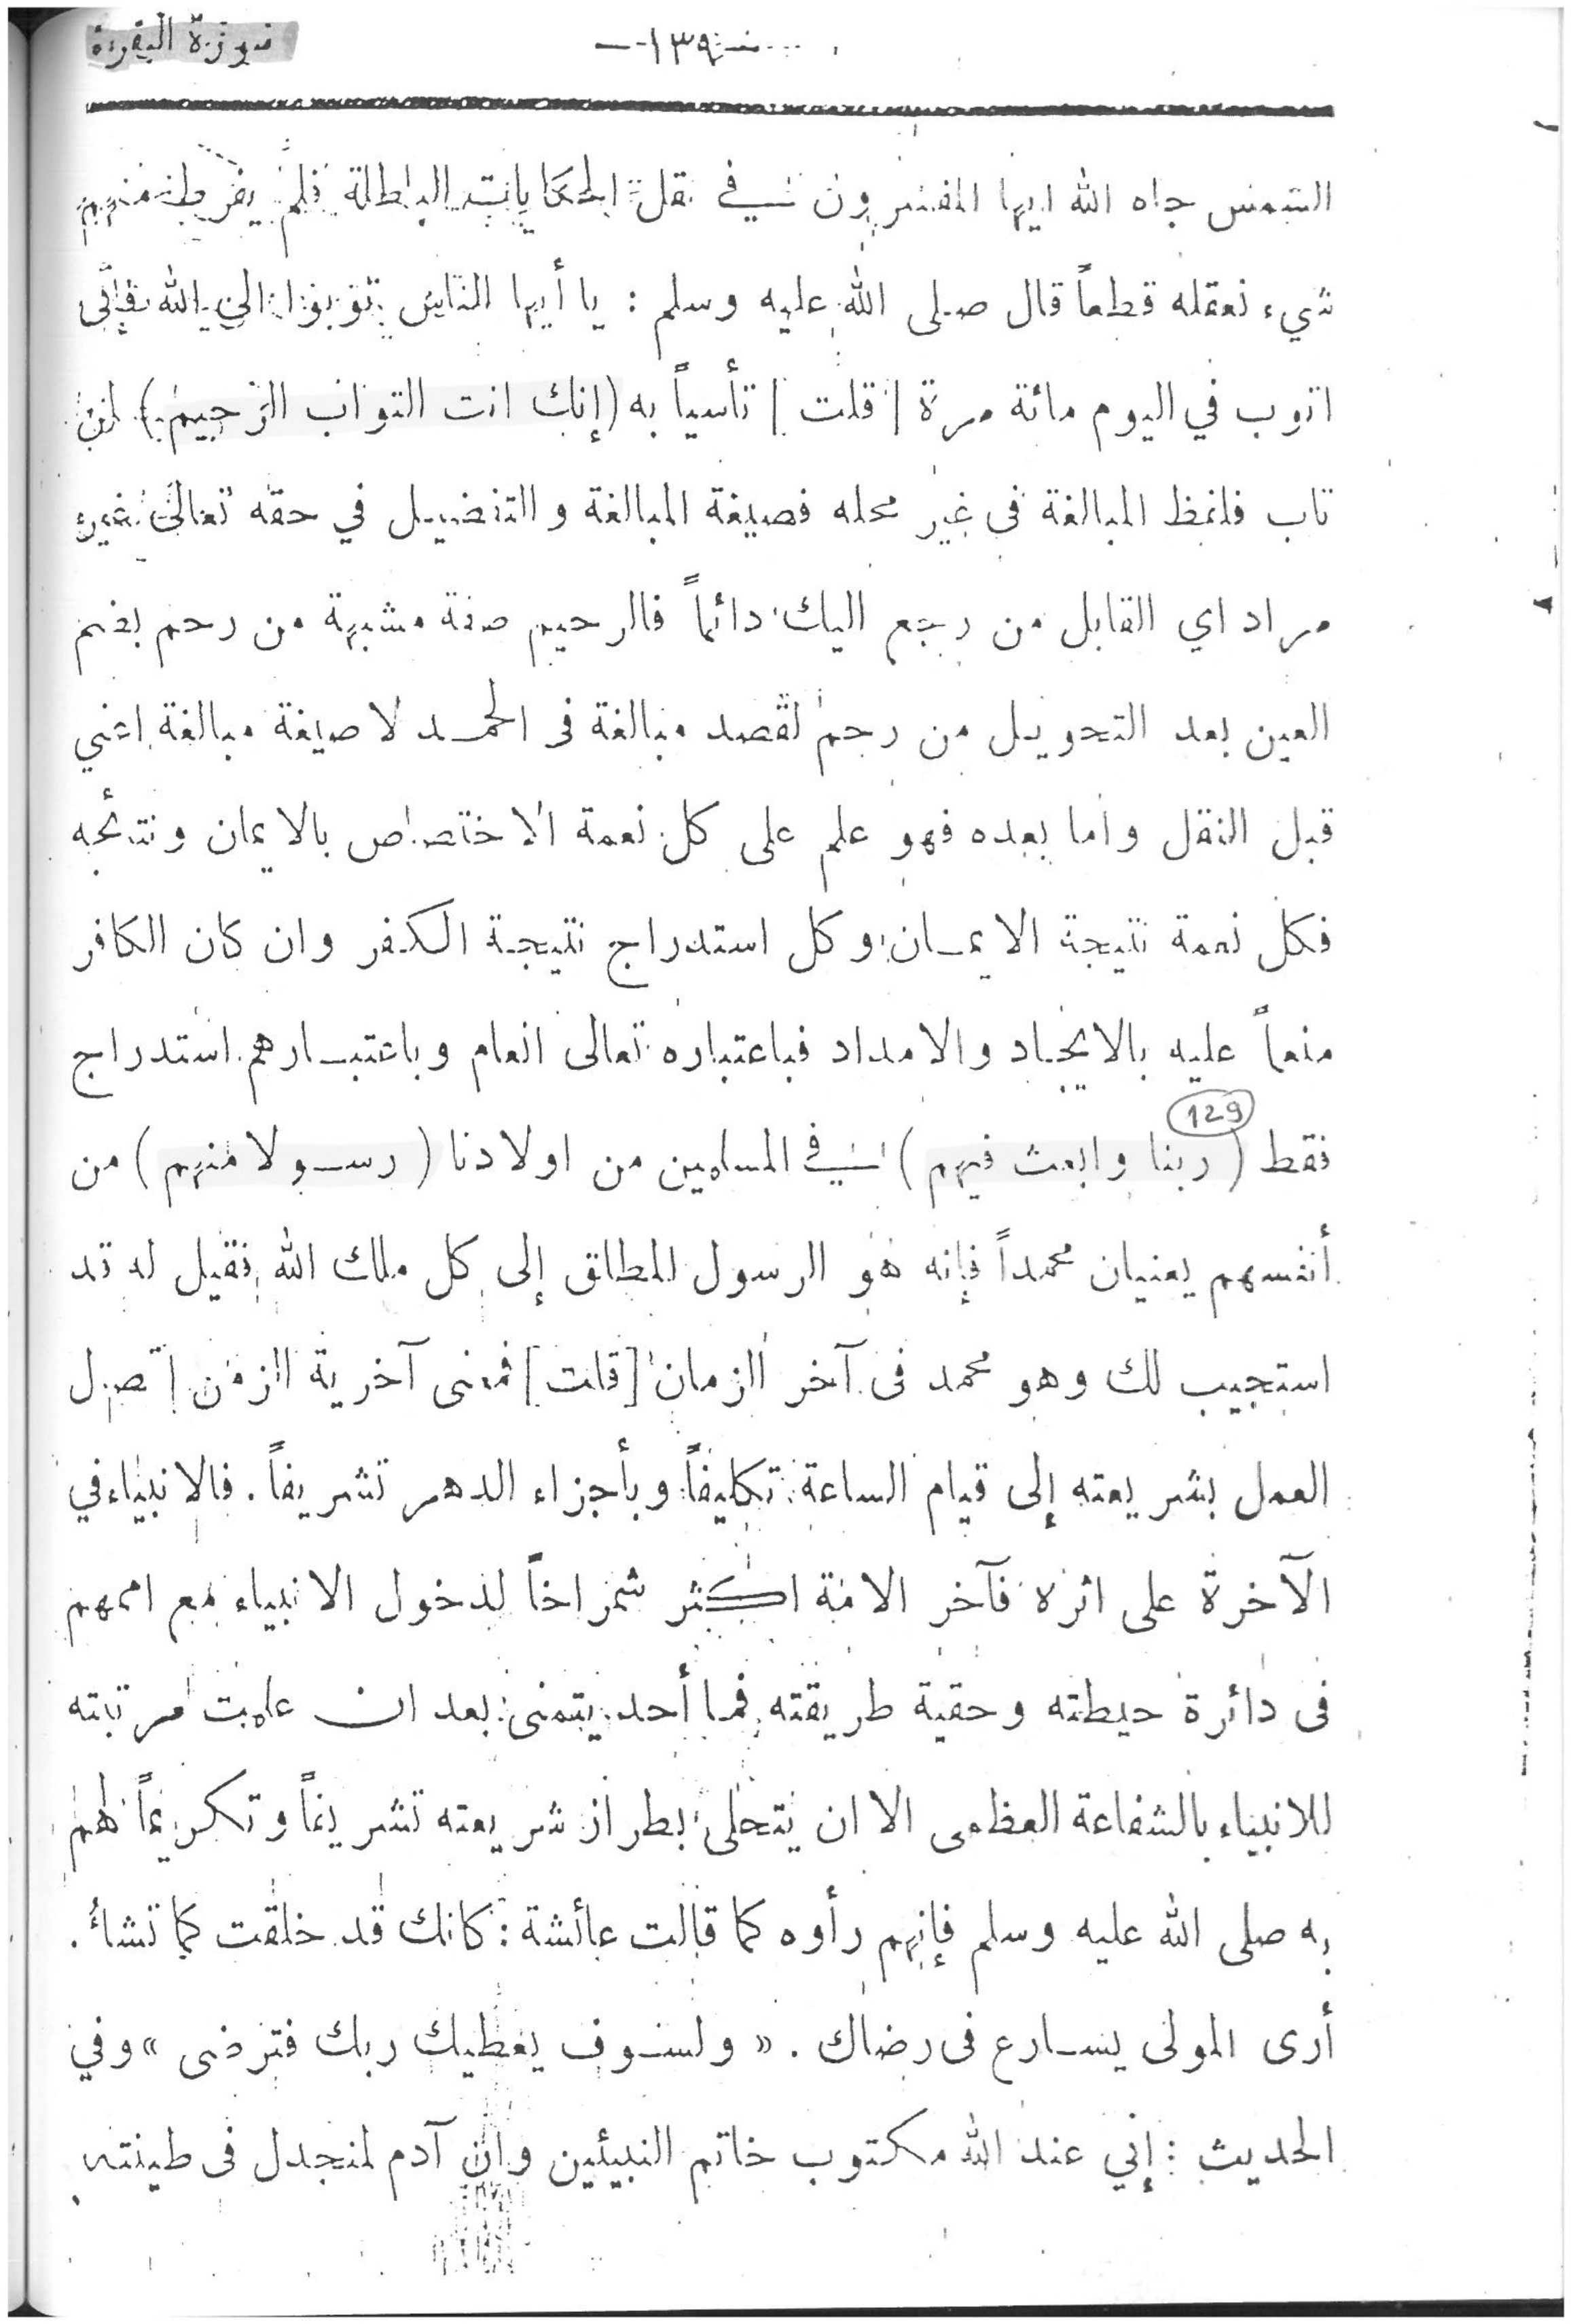 سورة البقرة
— ١٣٩ —
الشمس جاه الله ايها المفسرون في نقل الحكايات الباطلة فلم يفرط منهم
شيء نعقله قطعاً قال صلى الله عليه وسلم : يا أيها الناس توبوا الى الله فإنى
اتوب في اليوم مائة مرة [ قلت ] تأسياً به (إنك انت التواب الرحيم) لمن
تاب فلفظ المبالغة فى غير محله فصيغة المبالغة والتفضيل في حقه تعالى غير
مراد اي القابل من رجع اليك دائماً فالرحيم صفة مشبهة من رحم بضم
العين بعد التحويل من رحم لقصد مبالغة فى الحمد لا صيغة مبالغة اعني
قبل النقل واما بعده فهو علم على كل نعمة الاختصاص بالايمان ونتائجه
فكل نعمة نتيجة الايمان وكل استدراج نتيجة الكفر وان كان الكافر
منعماً عليه بالايجاد والامداد فباعتباره تعالى انعام وباعتبارهم استدراج
129
فقط (ربنا وابعث فيهم) في المسلمين من اولادنا (رسولا منهم) من
أنفسهم يعنيان محمداً فإنه هو الرسول المطلق إلى كل ملك الله فقيل له قد
استجيب لك وهو محمد فى آخر الزمان [قلت] فمعنى آخرية الزمن اتصل
العمل بشريعته إلى قيام الساعة تكليفاً وبأجزاء الدهر تشريفاً . فالانبياء في
الآخرة على اثره فآخر الامة اكثر شمراخاً لدخول الانبياء مع اممهم
فى دائرة حيطته وحقية طريقته فما أحد يتمنى بعد ان علمت مرتبته
للانبياء بالشفاعة العظمى الا ان يتحلى بطراز شريعته تشريفاً وتكريماً لهم
به صلى الله عليه وسلم فإنهم رأوه كما قالت عائشة : كانك قد خلقت كما تشاءُ .
أرى المولى يسارع فى رضاك . « ولسوف يعطيك ربك فترضى » وفي
الحديث : إني عند الله مكتوب خاتم النبيئين وان آدم لمنجدل فى طينته